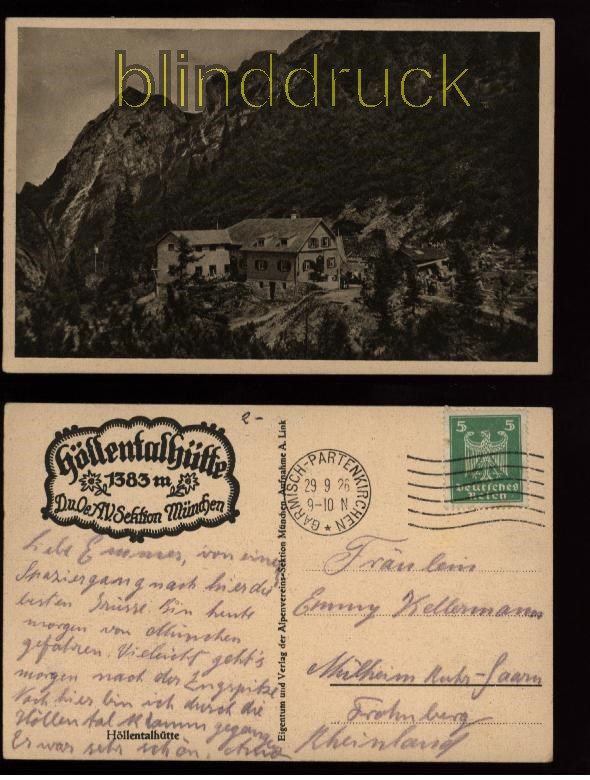 blinddruck
Höllentalhütte
1383 m
D.u.Oe.A.V. Sektion München
2-
Eigentum und Verlag der Alpenvereins-Sektion München. Aufnahme A. Link
GARMISCH-PARTENKIRCHEN
29 9 26
9-10 N
5 5
Deutsches
Reich
Liebe Emmy, von einem
Spaziergang nach hier die
besten Grüsse. Bin heute
morgen von München
gefahren. Vieleicht geht's
morgen nach der Zugspitze
Nach hier bin ich durch die
Höllental Klamm gegangen
Er war sehr schön.
Höllentalhütte
Fräulein
Emmy Kellermann
Mülheim Ruhr-Saarn
Frohnberg
Rheinland